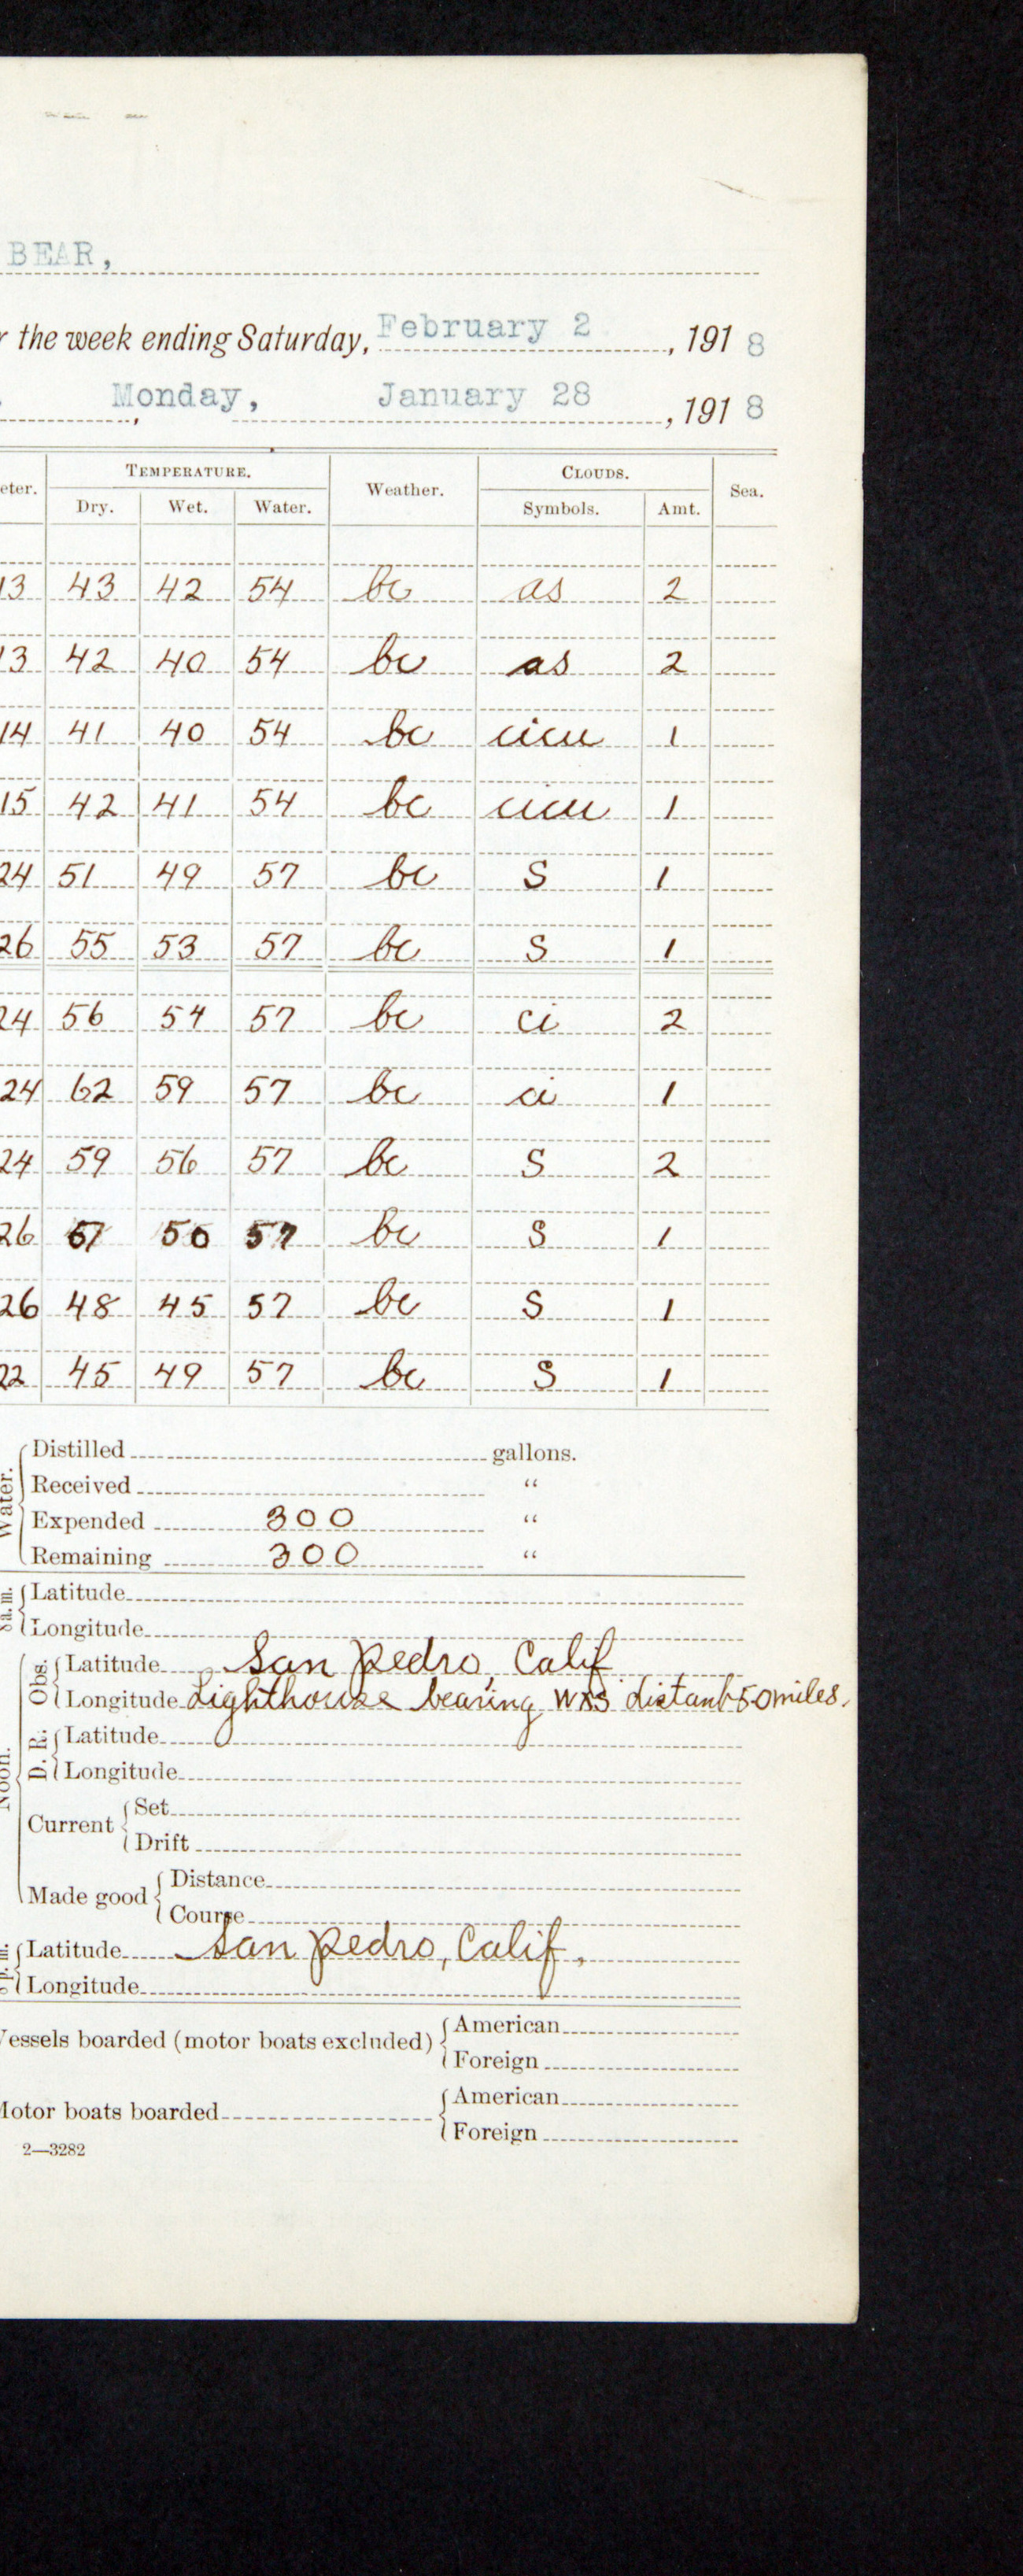 BEAR,
r the week ending Saturday, February 2, 1918
Monday, January 28, 1918
eter. TEMPERATURE. Weather. CLOUDS. Sea.
Dry. Wet. Water. Symbols. Amt.
13 43 42 54 bc as 2
13 42 40 54 bc as 2
14 41 40 54 bc cicu 1
15 42 41 54 bc cicu 1
24 51 49 57 bc S 1
26 55 53 57 bc S 1
24 56 54 57 bc ci 2
24 62 59 57 bc ci 1
24 59 56 57 bc S 2
26 50 57 bc S 1
26 48 45 57 bc S 1
22 45 49 57 bc S 1
Water.
Distilled gallons.
Received "
Expended 300 "
Remaining 300 "
8 a. m.
Latitude
Longitude
Noon.
Obs.
Latitude San Pedro, Calif
Longitude Lighthouse bearing distant 50 miles.
D. R.
Latitude
Longitude
Current
Set
Drift
Made good
Distance
Course
p. m.
Latitude San Pedro, Calif.
Longitude
Vessels boarded (motor boats excluded)
American
Foreign
Motor boats boarded
American
Foreign
2—3282